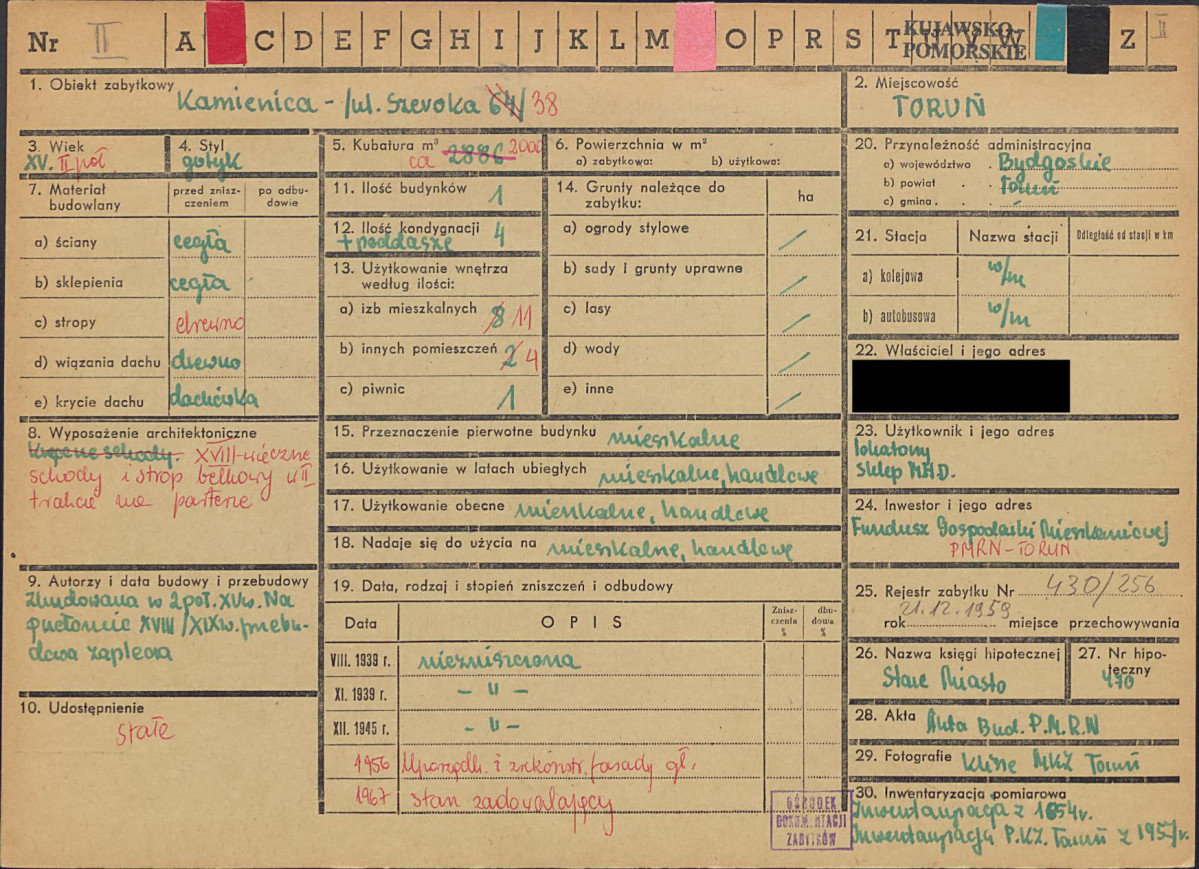 Nr II A C D E F G H I J K L M O P R S T U V W Z II
KUJAWSKO-
POMORSKIE
1. Obiekt zabytkowy Kamienica - /ul. Szeroka 64/ 38
2. Miejscowość
TORUŃ
3. Wiek
XV. II poł.
4. Styl
gotyk
5. Kubatura m³ 2000
ca 2886
6. Powierzchnia w m²
a) zabytkowa: b) użytkowa:
20. Przynależność administracyjna
a) województwo . Bydgoskie
b) powiat . . Toruń
c) gmina . . -
7. Materiał
budowlany
przed znisz-
czeniem
po odbu-
dowie
a) ściany cegła
b) sklepienia cegła
c) stropy drewno
d) wiązania dachu drewno
e) krycie dachu dachówka
8. Wyposażenie architektoniczne
Kręcone schody. XVIII-wieczne
schody i strop belkowy w II
trakcie na parterze
9. Autorzy i data budowy i przebudowy
Zbudowana w 2 poł. XV w. Na
przełomie XVIII/XIX w. przebu-
dowa zaplecza
10. Udostępnienie
stałe
11. Ilość budynków 1
12. Ilość kondygnacji 4
+ poddasze
13. Użytkowanie wnętrza
według ilości:
a) izb mieszkalnych 8 11
b) innych pomieszczeń 2 4
c) piwnic 1
14. Grunty należące do
zabytku:
ha
a) ogrody stylowe /
b) sady i grunty uprawne /
c) lasy /
d) wody /
e) inne /
15. Przeznaczenie pierwotne budynku mieszkalne
16. Użytkowanie w latach ubiegłych mieszkalne, handlowe
17. Użytkowanie obecne mieszkalne, handlowe
18. Nadaje się do użycia na mieszkalne, handlowe
19. Data, rodzaj i stopień zniszczeń i odbudowy
Data OPIS
Znisz-
czenia
%
dbu-
dowa
%
VIII. 1939 r. niezniszczona
XI. 1939 r. - " -
XII. 1945 r. - " -
1956 Uporządk. i zrekonstr. fasady gł.
1967 stan zadowalający
OŚRODEK
DOKUMENTACJI
ZABYTKÓW
21. Stacja Nazwa stacji Odległość od stacji w km
a) kolejowa w/m
b) autobusowa w/m
22. Właściciel i jego adres
23. Użytkownik i jego adres
lokatorzy
Sklep MHD.
24. Inwestor i jego adres
Fundusz Gospodarki Mieszkaniowej
PMRN-TORUŃ
25. Rejestr zabytku Nr 430/256
21.12.1959
rok miejsce przechowywania
26. Nazwa księgi hipotecznej
Stare Miasto
27. Nr hipo-
teczny
470
28. Akta Akta Bud. P.M.R.N
29. Fotografie Klisze MKZ Toruń
30. Inwentaryzacja pomiarowa
Inwentaryzacja z 1854r.
Inwentaryzacja P.K.Z. Toruń z 1957r.